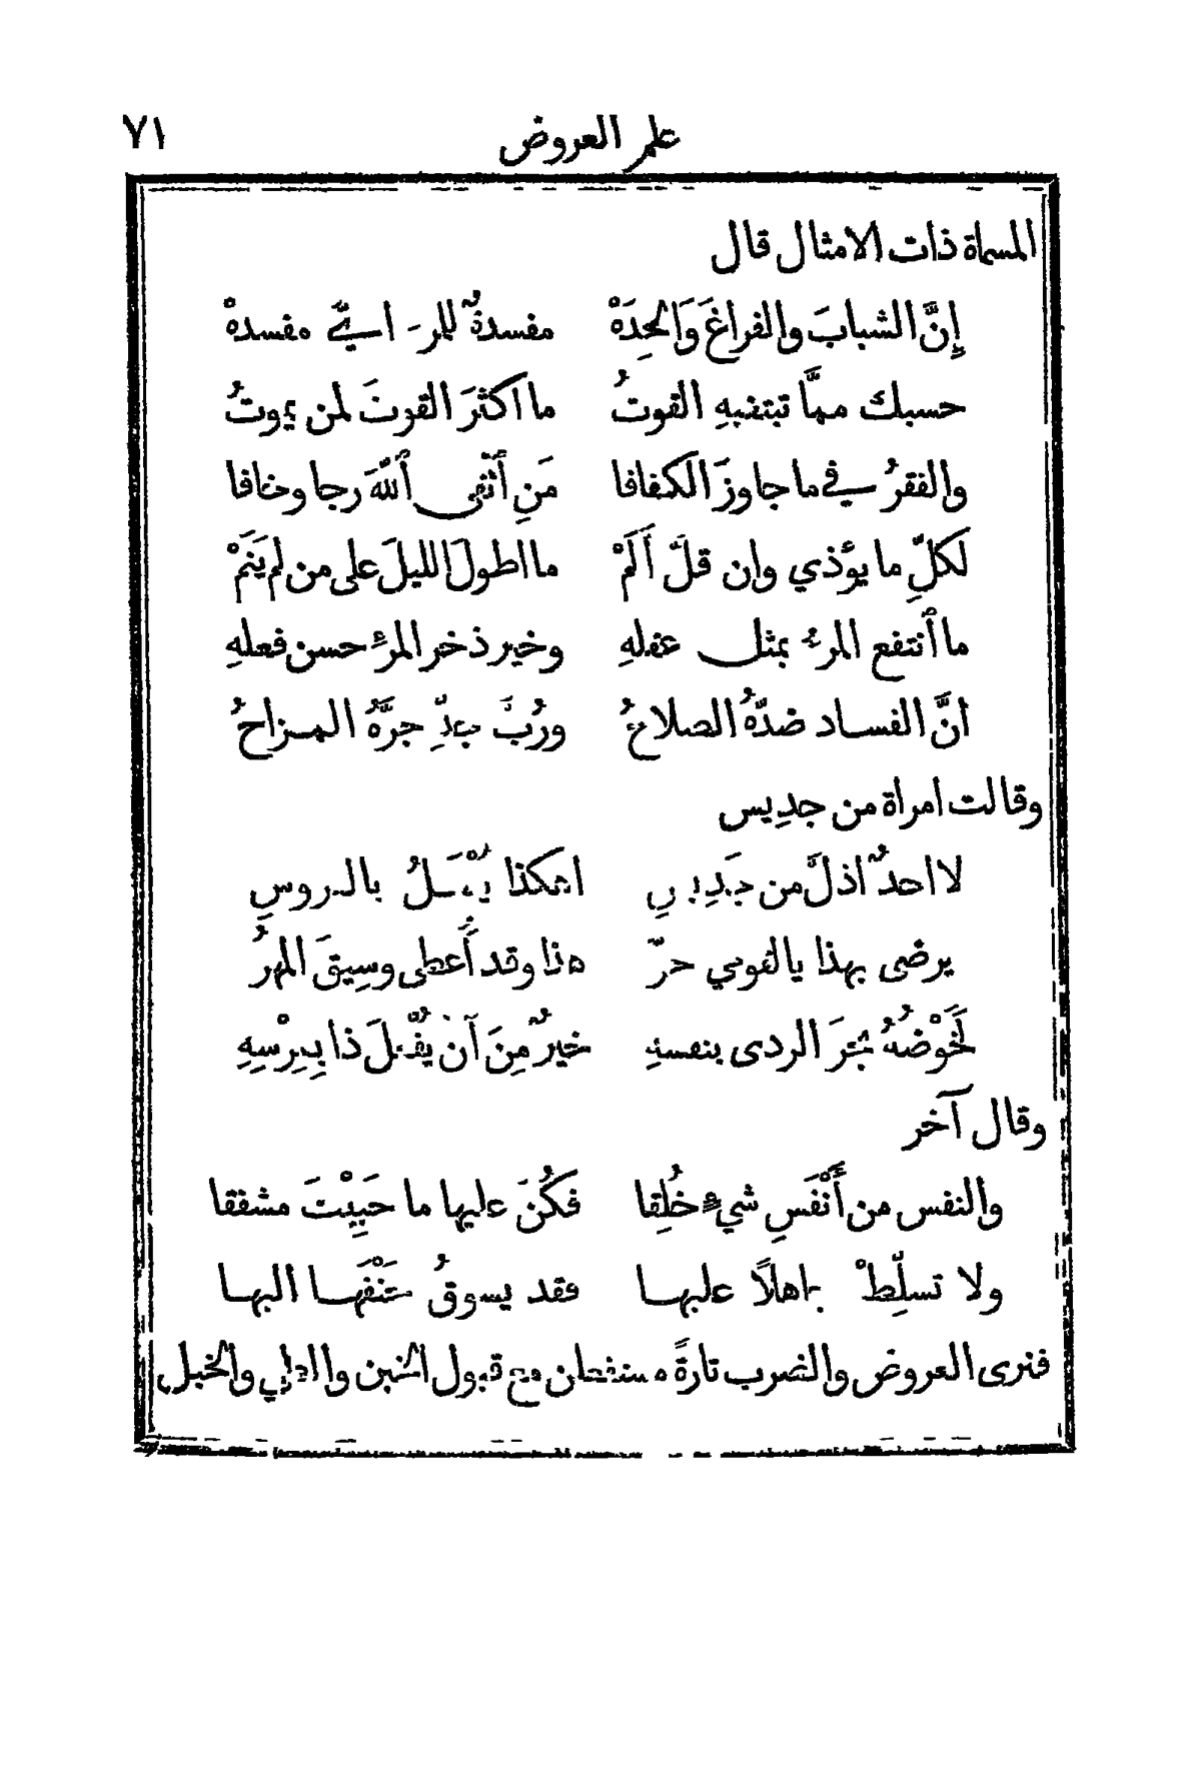 علم العروض ٧١
المسماة ذات الامثال قال
إِنَّ الشبابَ والفراغَ وَالجِدَهْ مفسدةٌ للمرء ايُّ مفسدهْ
حسبك ممَّا تبتغيهِ القوتُ ما اكثرَ القوتَ لمن يموتُ
والفقرُ في ما جاوزَ الكفافا مَنِ ٱتَّقى ٱللّٰهَ رجا وخافا
لكلِّ ما يؤذي وان قلَّ أَلَمْ ما اطولَ الليلَ على من لم يَنَمْ
ما ٱنتفع المرءُ بمثل عقلهِ وخير ذخر المرءِ حسن فعلهِ
انَّ الفساد ضدّهُ الصلاحُ ورُبَّ جدٍّ جرَّهُ المزاحُ
وقالت امراة من جدِيس
لا احدٌ اذلَّ من جَدِيسِ اهكذا يُفْعَلُ بالعروسِ
يرضى بهذا يا لقومي حرّ هذا وقد أُعطى وسِيقَ المهرُ
لَخَوْضُهُ بحرَ الردى بنفسهِ خيرٌ مِنَ آنْ يُفْعَلَ ذا بِعِرْسِهِ
وقال آخر
والنفس من أَنْفَسِ شيءٍ خُلِقا فكُنْ عليها ما حَيِيْتَ مشفقا
ولا تسلِّطْ جاهلاً عليها فقد يسوقُ حَتْفَها اليها
فنرى العروض والضرب تارةً مستفعلن مع قبول الخبن والطي والخبل